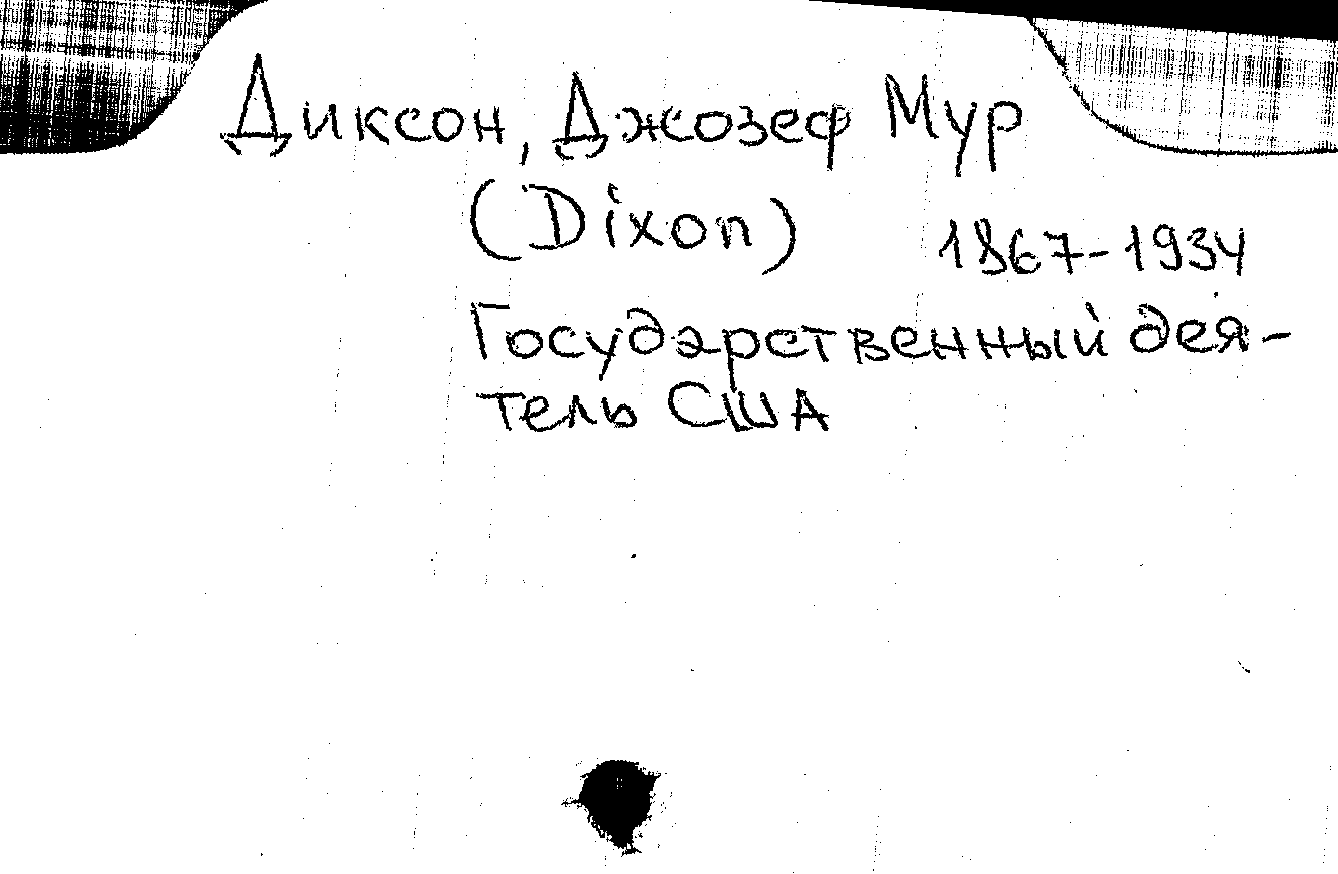 Диксон, Джозеф Мур
(Dixon) 1867-1934
Государственный дея-
тель США